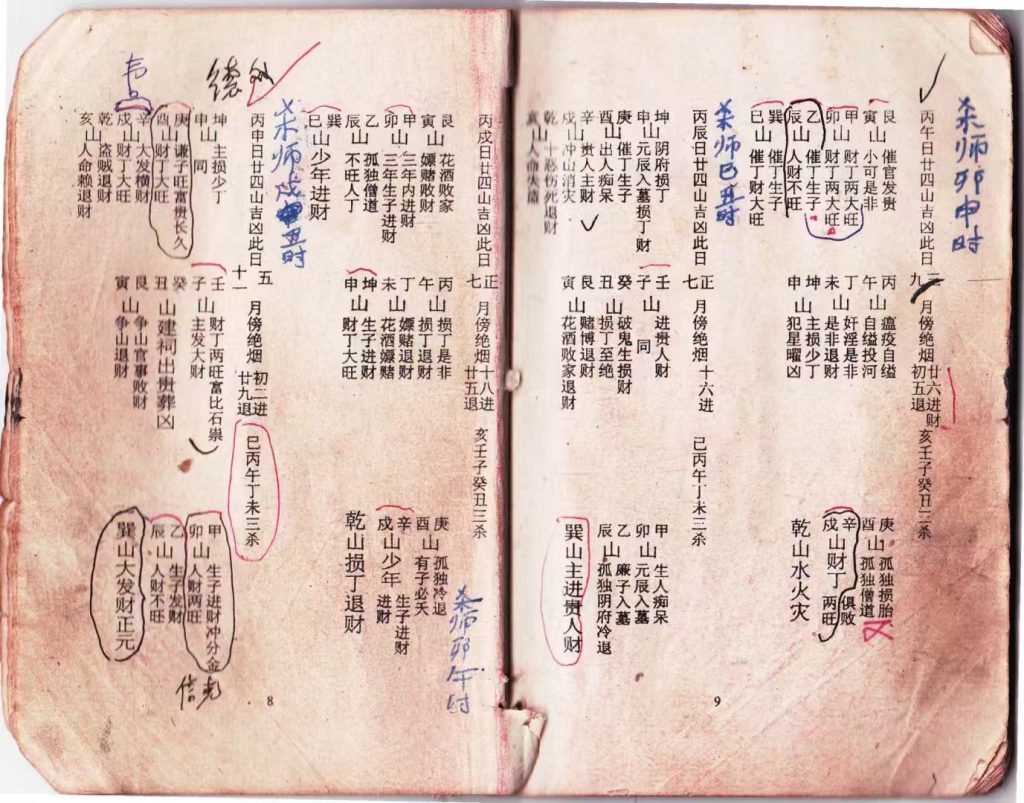 丙戌日廿四山吉凶此日
正七月傍绝烟十八进
廿五退
亥壬子癸丑三杀
艮山花酒败家
寅山嫖赌败财
甲山三年内进财
卯山三年生子进财
乙山孤独僧道
辰山不旺人丁
巽
巳山少年进财
丙山损丁是非
午山损丁退财
丁山嫖赌退财
未山花酒嫖赌
坤山生子进财
申山财丁大旺
庚山孤独冷退
酉山有子必夭
辛山少年生子进财
戍山少年进财
乾山损丁退财
杀师卯午时
丙申日廿四山吉凶此日
五十一月傍绝烟初二进
廿九退
巳丙午丁未三杀
杀师戌丑时
坤山主损少丁
申山同
庚山谦子旺富贵长久
酉山财丁大旺
辛山大发横财
戍山财丁大旺
乾山盗贼退财
亥山人命赖退财
壬山财丁两旺富比石崇
子山主发大财
癸
丑山建祠出贵葬凶
艮山争山官事败财
寅山争山退财
甲山生子进财冲分金
卯山人财两旺
乙山生子发财
辰山人财不旺
巽山大发财正元
8
丙午日廿四山吉凶此日
二九月傍绝烟廿六进财
初五退
亥壬子癸丑三杀
杀师卯申时
艮山催官发贵
寅山小可是非
甲山财丁两大旺
卯山财丁两大旺
乙山催丁生子
辰山人财不旺
巽山催丁生子
巳山催丁财大旺
丙山瘟疫自缢
午山自缢投河
丁山奸淫是非
未山是非退财
坤山主损少丁
申山犯星曜凶
庚山孤独损胎
酉山孤独僧道
辛山财丁俱败
戍山财丁两旺
乾山水火灾
丙辰日廿四山吉凶此日
正七月傍绝烟十六进
巳丙午丁未三杀
杀师巳丑时
坤山阴府损丁
申山元辰入墓损丁财
庚山催丁生子
酉山出人痴呆
辛山贵人主财
戍山冲山消灾
乾山十恶伤死退财
壬山进贵人财
子山同
癸山破鬼生损财
丑山损丁至绝
艮山赌博退财
寅山花酒败家退财
甲山生人痴呆
卯山元辰入墓
乙山廉子入墓
辰山孤独阴府冷退
巽山主进贵人财
9